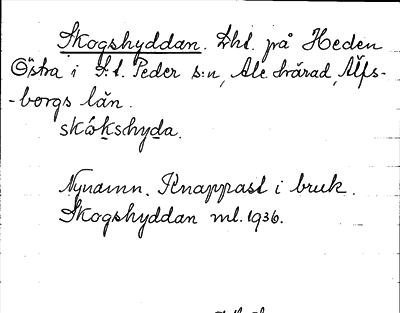 Skogshyddan. Lht. på Heden
Östra i S:t. Peder s:n, Ale härad, Älfs-
-borgs län.
skókschyda.
Nynamn. Knappast i bruk.
Skogshyddan ml. 1936.